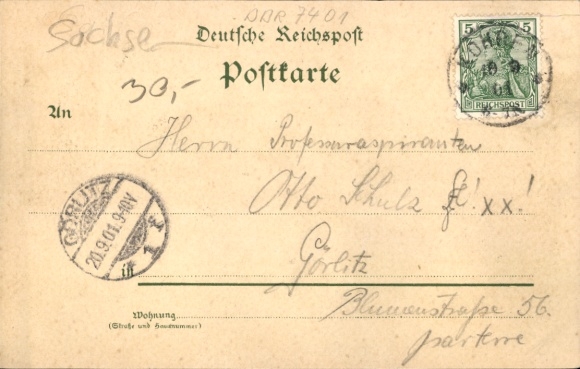 DBR 7401
Sachse
Deutsche Reichspost
Postkarte
30,-
5 5
REICHSPOST
An
Herrn Professuraspiranten
Otto Schulz xx!
GÖRLITZ
20.9.01.9-10V
1
in Görlitz
Wohnung
(Straße und Hausnummer)
Blumenstraße 56.
parterre